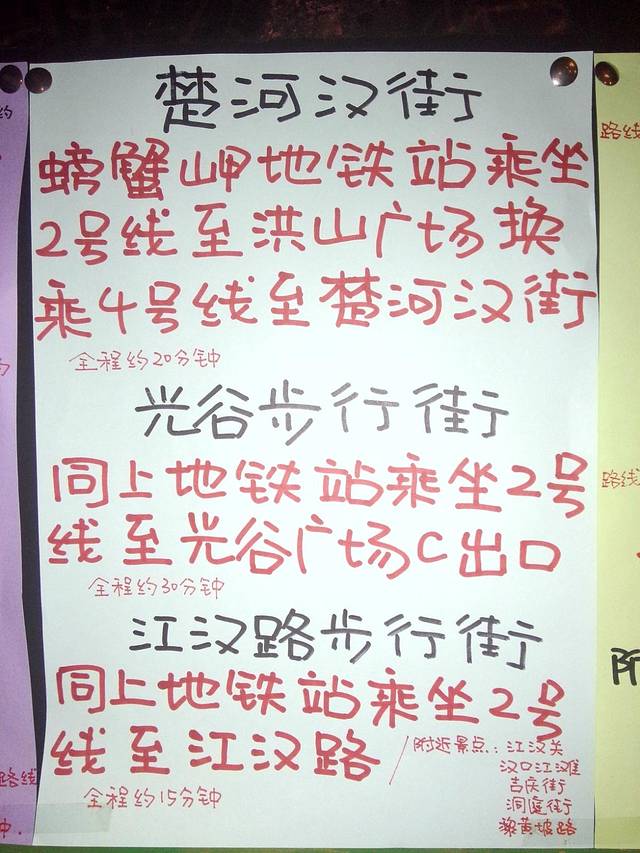 楚河汉街
螃蟹岬地铁站乘坐
2号线至洪山广场换
乘4号线至楚河汉街
全程约20分钟
光谷步行街
同上地铁站乘坐2号
线至光谷广场C出口
全程约30分钟
江汉路步行街
同上地铁站乘坐2号
线至江汉路
全程约15分钟
附近景点:江汉关
汉口江滩
吉庆街
洞庭街
黎黄坡路
路线
路线
附
路线
钟.
约